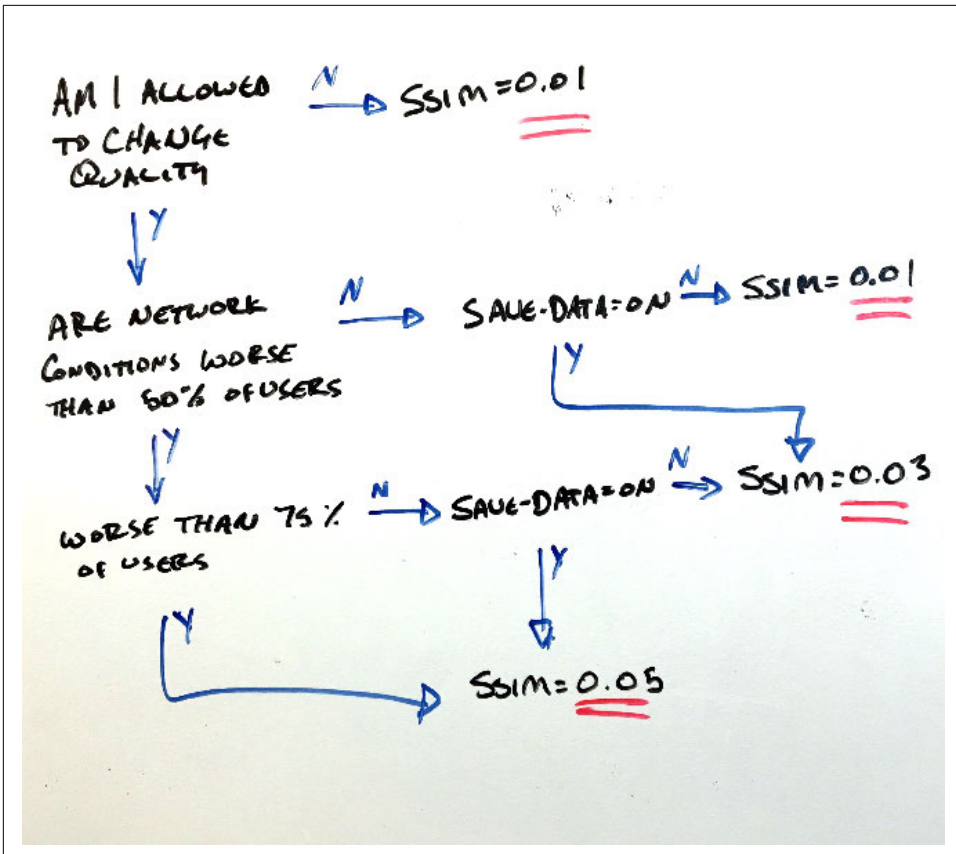 AM I ALLOWED
TO CHANGE
QUALITY
N
SSIM=0.01
Y
ARE NETWORK
CONDITIONS WORSE
THAN 50% OF USERS
N
SAVE-DATA=ON
N
SSIM=0.01
Y
Y
WORSE THAN 75%
OF USERS
N
SAVE-DATA=ON
N
SSIM=0.03
Y
Y
SSIM=0.05